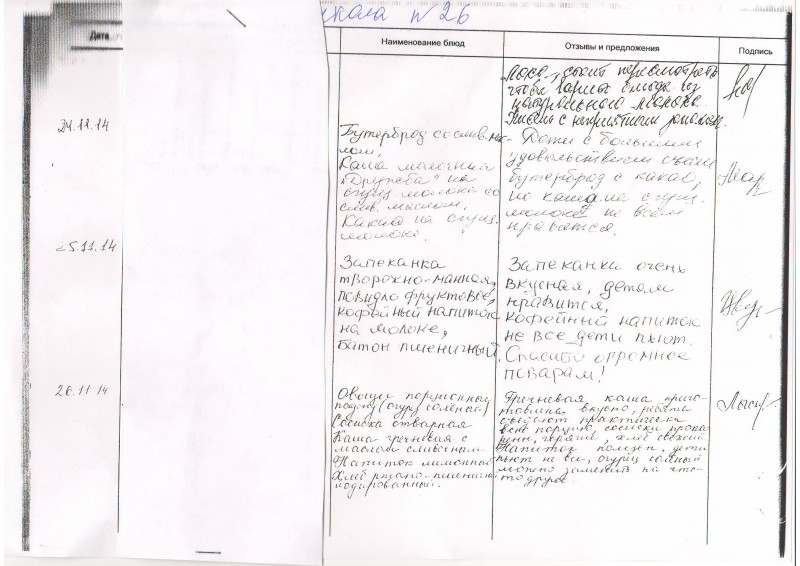 кола N 26
Дата
Наименование блюд
Отзывы и предложения
Подпись
стоит пересмотреть
чтобы варить блюда из
натурального молока.
24.11.14
Бутерброд со слив. мас-
лом,
Каша молочная
"Дружба" на
сгущ молоке со
слив. маслом,
Какао на сгущ.
молоке.
Дети с большим
удовольствием съели
бутерброд с какао,
но каша на сгущ.
молоке не всем
нравится.
25.11.14
Запеканка
творожно-манная,
повидло фруктовое,
кофейный напиток
на молоке,
батон пшеничный.
Запеканка очень
вкусная, детям
нравится,
кофейный напиток
не все дети пьют.
Спасибо огромное
поварам!
26.11.14
Овощи порционные
(огурц солёный)
Сосиска отварная
Каша гречневая с
маслом сливочным
Напиток лимонный
Хлеб ржано-пшенич
йодированный.
Гречневая каша приго-
товлена вкусно, ребята
съедают практически
всю порцию, сосиски прова
рены, горячие, хлеб свежий.
Напиток полезен, дети
пьют не все, огурец соленый
можно заменить на что-
то другое.